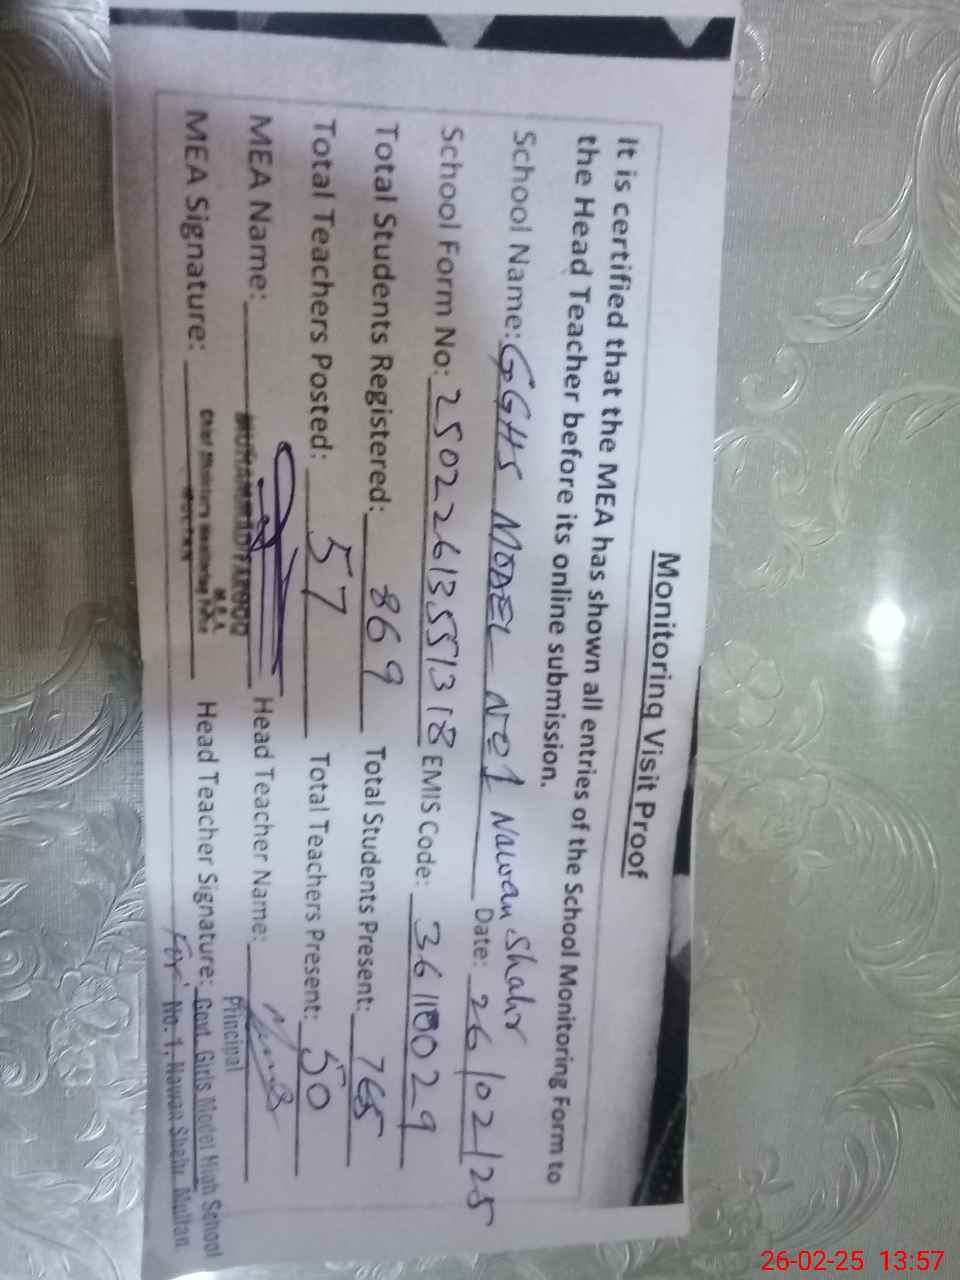 Monitoring Visit Proof
It is certified that the MEA has shown all entries of the School Monitoring Form to
the Head Teacher before its online submission.
School Name: GGHS MODEL NO1 Nawan Shahr Date: 26/02/25
School Form No: 25022613551318 EMIS Code: 36110029
Total Students Registered: 869 Total Students Present: 765
Total Teachers Posted: 57 Total Teachers Present: 50
MEA Name: MUHAMMAD FAROOQ Head Teacher Name:
MEA Signature: Head Teacher Signature:
M.E.A
Chief Ministers Monitoring Force
Multan
Principal
Govt. Girls Model High School
For No. 1, Nawan Shahr Multan
26-02-25 13:57